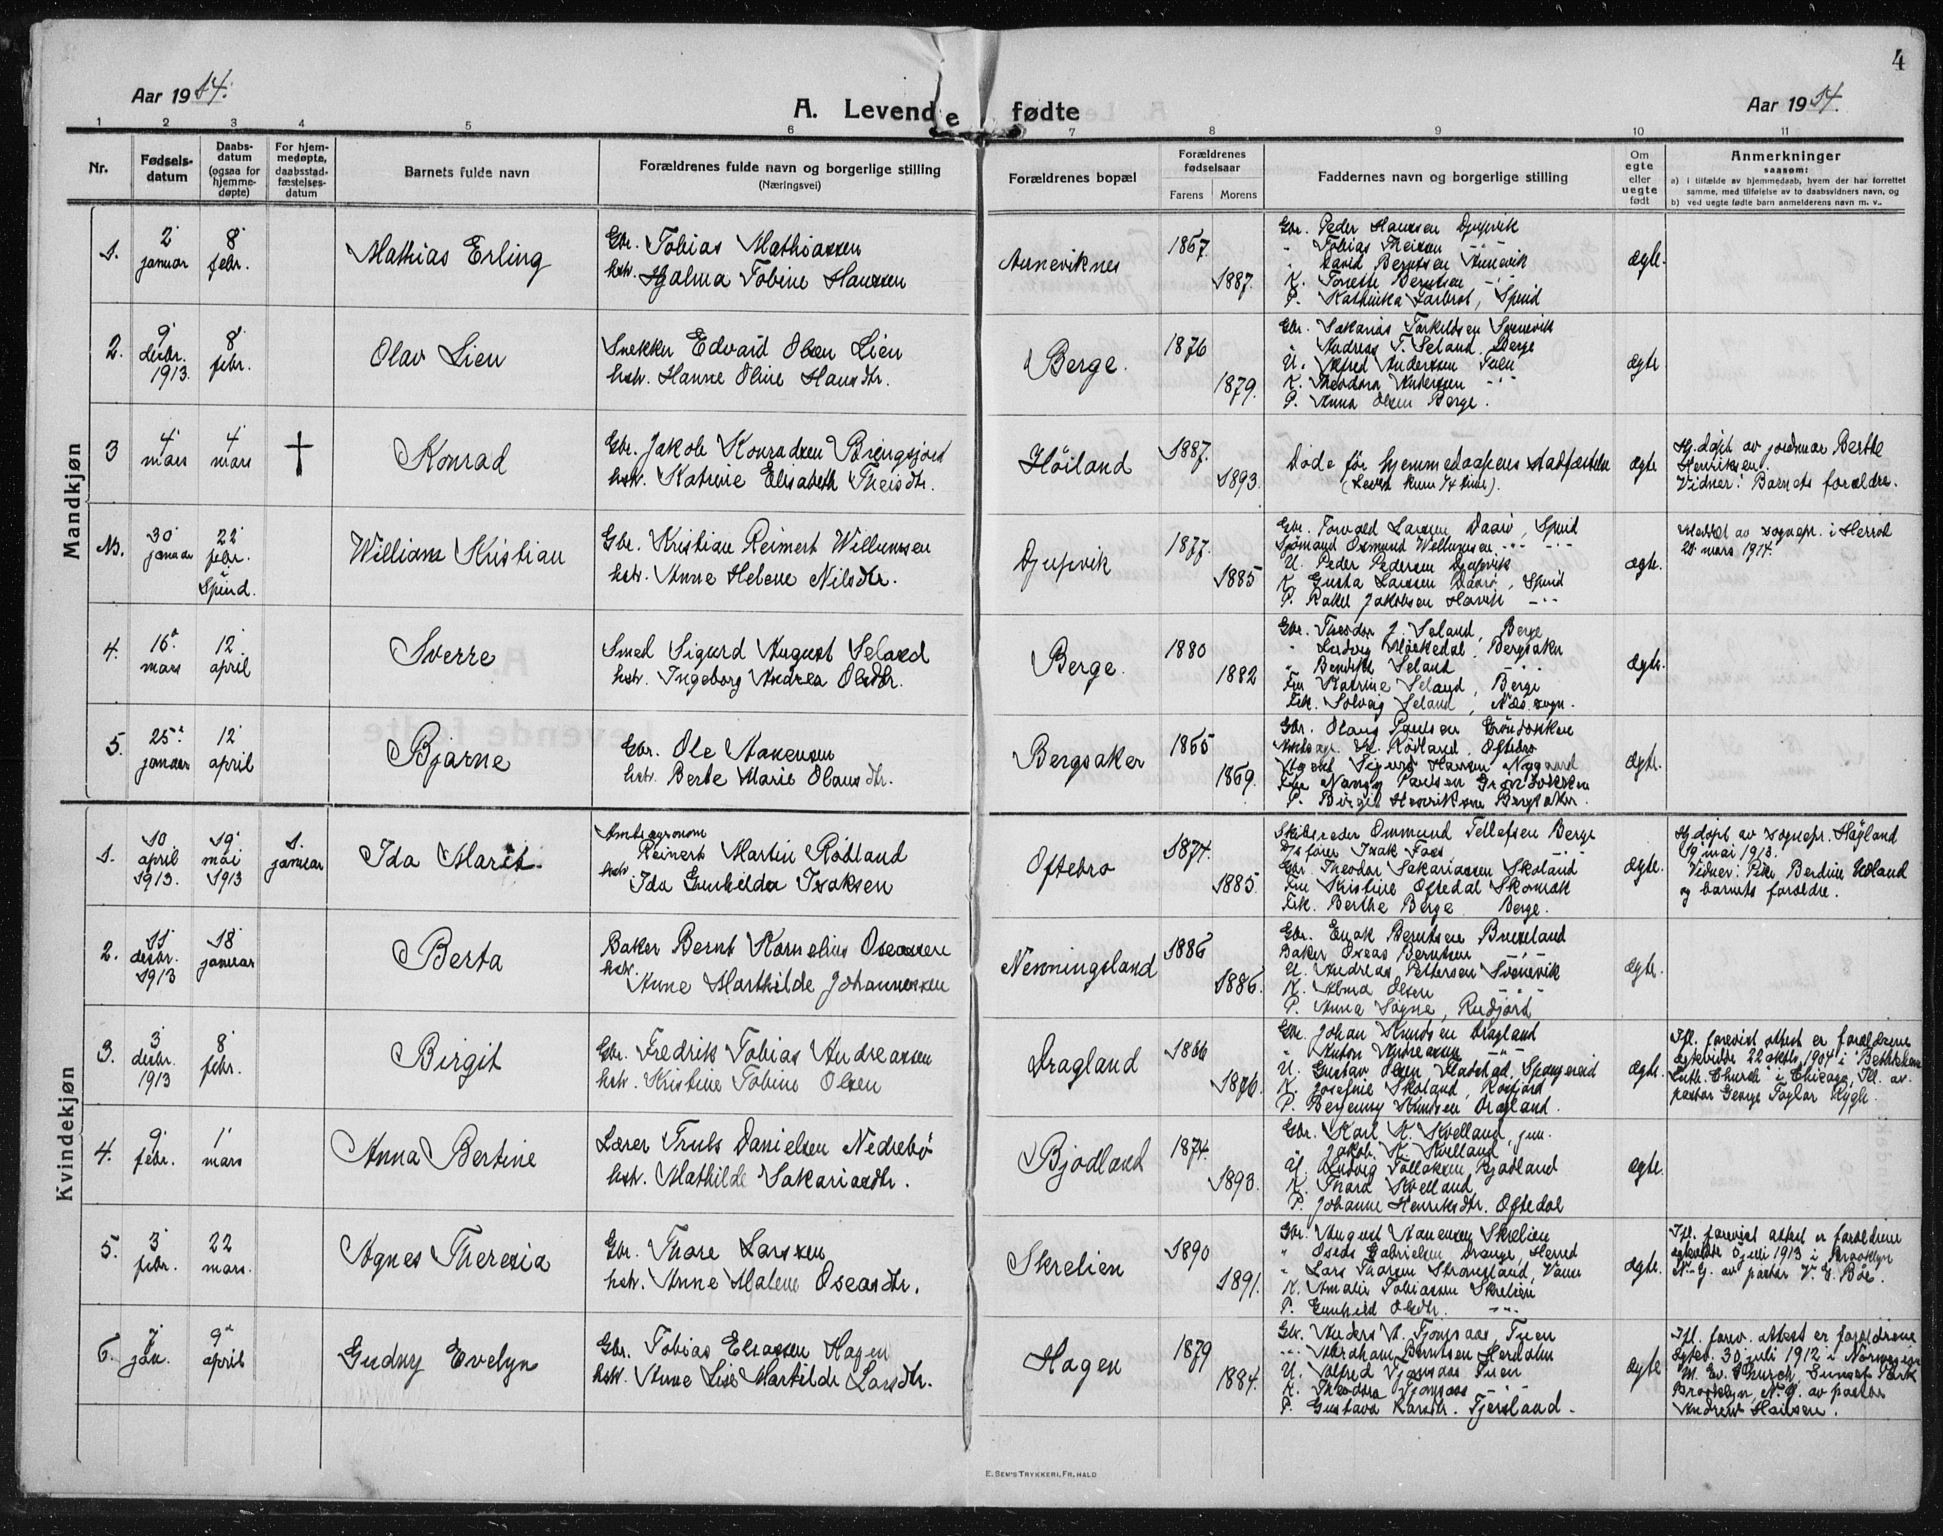 4
Aar 1914.
A. Levende fødte
Aar 1914.
1 2 3 4 5 6 7 8 9 10 11
Nr.
Fødsels-
datum
Daabs-
datum
(ogsaa for
hjemme-
døpte)
For hjem-
medøpte,
daabsstad-
fæstelses-
datum
Barnets fulde navn
Forældrenes fulde navn og borgerlige stilling
(Næringsvei)
Forældrenes bopæl
Forældrenes
fødselsaar
Farens Morens
Faddernes navn og borgerlige stilling
Om
egte
eller
uegte
født
Anmerkninger
saasom:
a) i tilfælde av hjemmedaab, hvem der har forrettet
samme, med tilføielse av to daabsvidners navn, og
b) ved uegte fødte barn anmelderens navn m. v.
Mandkjøn
1. 2 januar 8 febr. Mathias Erling
Gbr. Tobias Mathiassen
hstr. Hjalma Tobine Hanssen
Anneviknes 1867. 1887.
Gbr. Peder Hanssen Djupvik
" Tobias Theisen
" David Berntsen Annevik
K. Tonette Berntsen
P. Spind
ægte.
2. 9 desbr. 1913. 8 febr. Olav Lien
Snekker Edvard Olsen Lien
hstr. Hanne Oline Hansdtr.
Berge. 1876 1879.
Gbr. Sakarias Torkildsen Svenevik
" Andreas T. Seland Berge
U. Alfred Anderssen Tuen
K. Theodora Andersen
P. Anna Olsen Berge.
ægte.
3 4 mars 4 mars † Konrad
Gbr. Jakob Konradsen Bringsjord
hstr. Katrine Elisabeth Theisdtr.
Høiland 1887. 1893.
Døde før hjemmedaapens stadfæstelse
(Levet kun 1/4 time).
ægte
Hj.døpt av jordmor Berthe
Henriksen.
Vidner: Barnets forældre.
Nb. 30 januar 22 febr. Spind. William Kristian
Gbr. Kristian Reimert Willumsen
hstr. Anne Helene Nilsdtr.
Djupvik 1877. 1885
Gbr. Torvald Larsen Daarø, Spind
Sjømand Osmund Willumsen
U. Peder Pedersen Djupvik
K. Gusta Larssen Daarø, Spind
P. Rakel Jakobsen Havik
ægte.
Meddelt av sognepr. i Herred
20 mars 1914.
4. 16 mars 12 april Sverre
Smed Sigurd August Seland
hstr. Ingeborg Andrea Olsdtr.
Berge. 1880 1882
Gbr. Theodor J. Seland, Berge
" Ludvig Bergsaker
" Seland
Fru Katrine Seland, Berge
Frk. Solveig Seland, Næs sogn.
ægte.
5. 25 januar 12 april Bjarne
Gbr. Ole Aanensen
hstr. Berte Marie Olausdtr.
Bergsaker 1865 1869.
Gbr. Olaus Paulsen Grøndokken
Amtsagr. M. Rødland, Oftebro
Agent Sigurd Hansen Nygaard
Fru Nanny Paulsen Grøndokken
P. Birgit Henriksen Bergsaker.
ægte.
Kvindekjøn
1. 10 april 1913. 19 mai 1913 1. januar Ida Marit.
Amtsagronom
Reinert Martin Rødland
hstr. Ida Gunhilda Isaksen
Oftebro 1874. 1885.
Skibsreder Ommund Tellefsen Berge
Isak Foss
Gbr. Theodor Sakariassen Skoland
Fru Kristine Oftedal Skomrak
Frk. Berthe Berge Berge.
ægte.
Hj.døpt av sognepr. Høyland
19 mai 1913.
Vidner: Berdine Udland
og barnets forældre.
2. 11 desbr. 1913 18 januar Berta
Baker Bernt Kornelius Oseassen
hstr. Anne Marthilde Johannessen
Nenningsland 1886 1886.
Gbr. Enok Berntsen Buxeland
Baker Oseas Berntsen
U. Andreas Pettersen Svenevik
K. Alma Olsen
P. Anna Søgne, Rudjord
ægte.
3. 3 desbr. 1913 8 febr. Birgit
Gbr. Fredrik Tobias Andreassen
hstr. Kristine Tobine Olsen
Dragland 1866 1876.
Gbr. Johan Knudsen Dragland
" Anton Andreassen
U. Gustav Olsen Vladstad, Spangereid
K. Josefine Skoland, Rosfjord
P. Knudsen Dragland.
ægte.
Ifl. forevist attest er forældrene
egteviede 22 oktb. 1904 i "Bethlehem
Luth. Church" i Chicago, Ill. av
pastor George Taylor Rygh.
4. 9 febr. 1 mars Anna Bertine
Lærer Truls Danielsen Nedrebø
hstr. Mathilde Sakariasdtr.
Bjodland 1874. 1893.
Gbr. Karl K. Kvelland, jun.
Jakob K. Kvelland
U. Ludvig Tollaksen Bjodland
K. Thora Kvelland
P. Johanne Henriksdtr. Oftedal
ægte.
5. 3 febr. 22 mars. Agnes Theresia
Gbr. Thore Larssen
hstr. Anne Malene Oseasdtr.
Skrelien 1890 1891.
Gbr. August Aanensen Skrelien
" Oseas Gabrielsen Drange, Herred
" Lars Thorsen Strømsland, Vanse
K. Amalie Tobiassen Skrelien
P. Gunhild Olsdtr.
ægte.
Ifl. forevist attest er forældrene
egteviede juli 1913 i Brooklyn
N.Y. av pastor V. E. Boe.
6. 7 jan. 9 april Gudny Evelyn
Gbr. Tobias Eliassen Hagen
hstr. Anne Lise Martilde Larsdtr.
Hagen 1879 1884.
Gbr. Anders A. Fjomsaas, Tuen
Abraham Berntsen
U. Alfred Fjomsaas Tuen
K. Theodora Fjomsaas
P. Gustava Tjersland.
ægte
Ifl. forev. attest er forældrene
egtev. 30 juli 1912 i Norwegian
M. Ev. Church, Sunset Park
Brooklyn, N.Y. av pastor
Andrew Hansen.
E. SEM'S TRYKKERI, FR.HALD